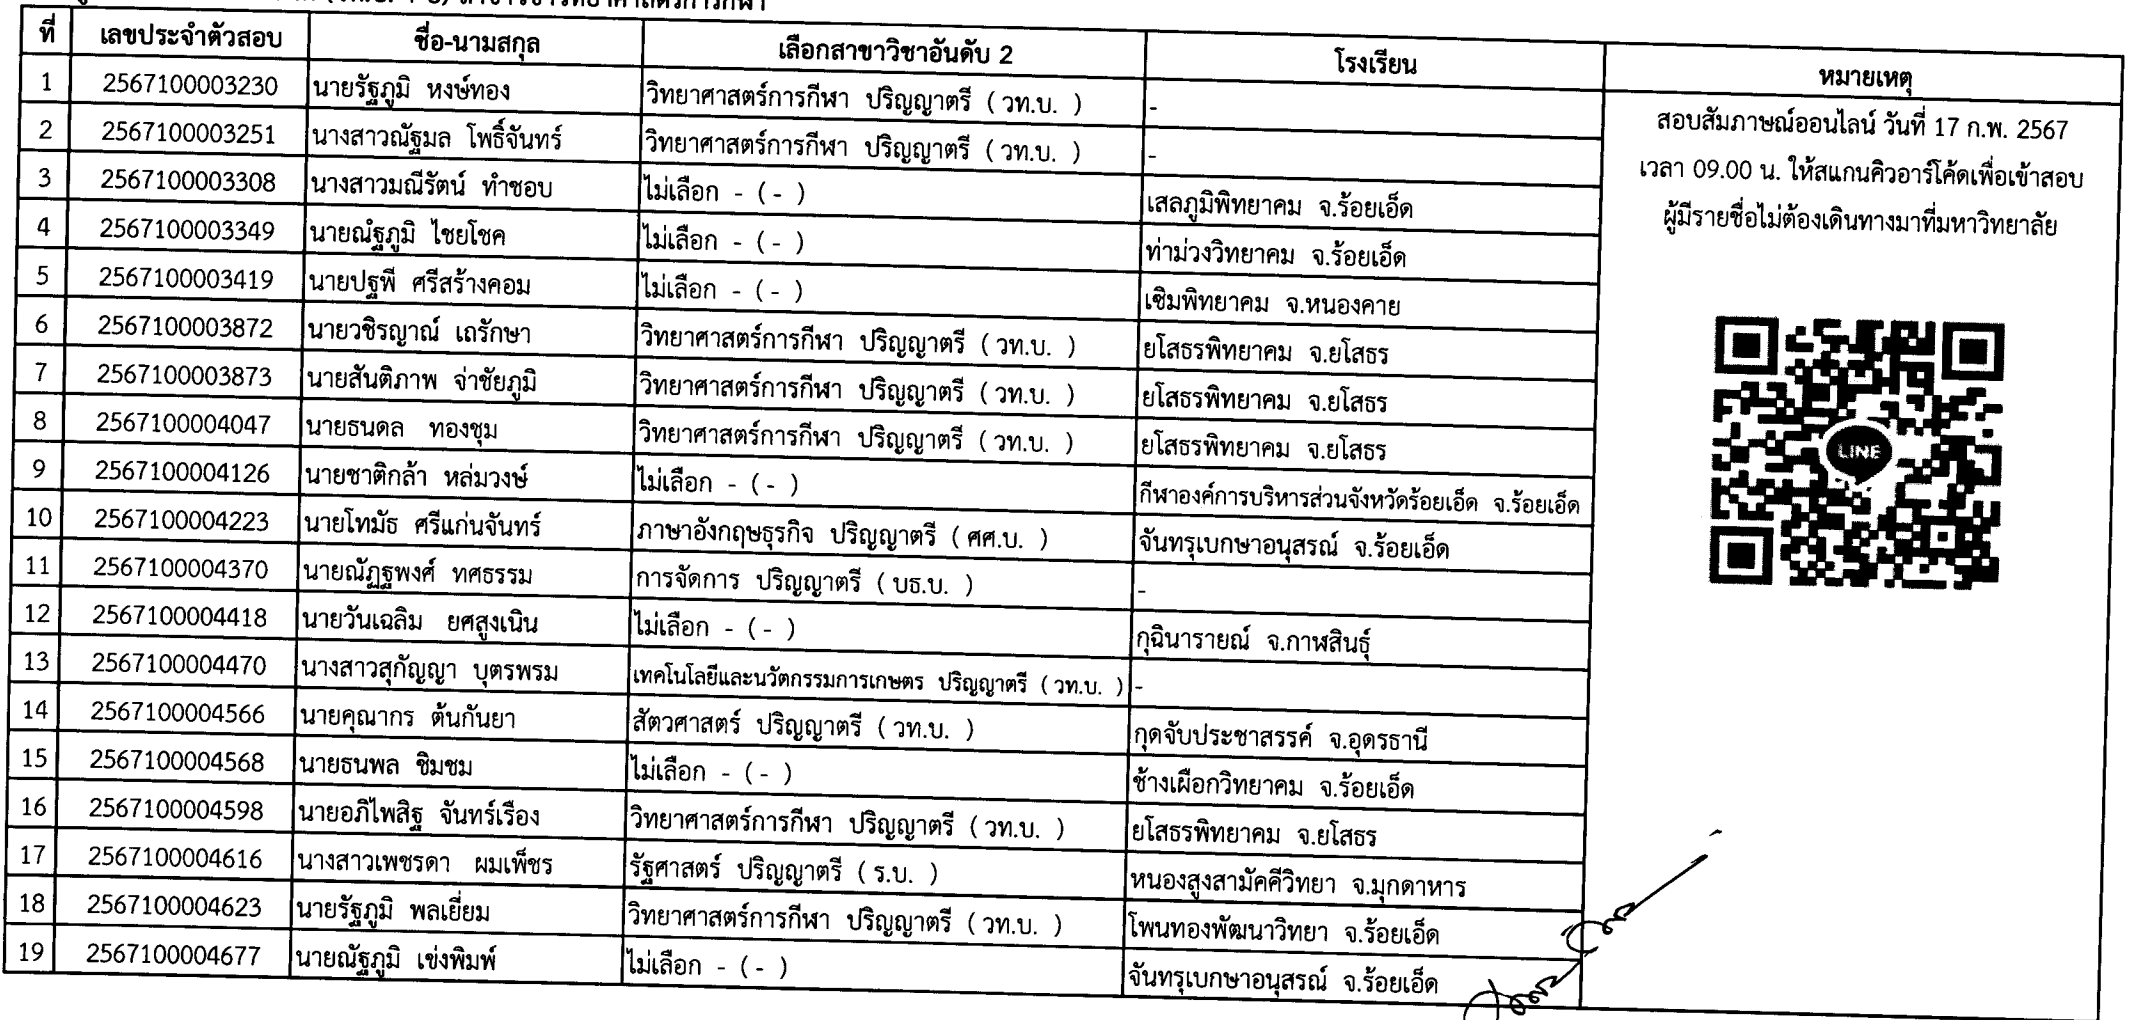 ที่ เลขประจำตัวสอบ ชื่อ-นามสกุล เลือกสาขาวิชาอันดับ 2 โรงเรียน หมายเหตุ
1 2567100003230 นายรัฐภูมิ หงษ์ทอง วิทยาศาสตร์การกีฬา ปริญญาตรี ( วท.บ. ) -
2 2567100003251 นางสาวณัฐมล โพธิ์จันทร์ วิทยาศาสตร์การกีฬา ปริญญาตรี ( วท.บ. ) -
3 2567100003308 นางสาวมณีรัตน์ ทำชอบ ไม่เลือก - ( - ) เสลภูมิพิทยาคม จ.ร้อยเอ็ด
4 2567100003349 นายณํฐภูมิ ไชยโชค ไม่เลือก - ( - ) ท่าม่วงวิทยาคม จ.ร้อยเอ็ด
5 2567100003419 นายปฐพี ศรีสร้างคอม ไม่เลือก - ( - ) เซิมพิทยาคม จ.หนองคาย
6 2567100003872 นายวชิรญาณ์ เถรักษา วิทยาศาสตร์การกีฬา ปริญญาตรี ( วท.บ. ) ยโสธรพิทยาคม จ.ยโสธร
7 2567100003873 นายสันติภาพ จ่าชัยภูมิ วิทยาศาสตร์การกีฬา ปริญญาตรี ( วท.บ. ) ยโสธรพิทยาคม จ.ยโสธร
8 2567100004047 นายธนดล ทองชุม วิทยาศาสตร์การกีฬา ปริญญาตรี ( วท.บ. ) ยโสธรพิทยาคม จ.ยโสธร
9 2567100004126 นายชาติกล้า หล่มวงษ์ ไม่เลือก - ( - ) กีฬาองค์การบริหารส่วนจังหวัดร้อยเอ็ด จ.ร้อยเอ็ด
10 2567100004223 นายโทมัธ ศรีแก่นจันทร์ ภาษาอังกฤษธุรกิจ ปริญญาตรี ( ศศ.บ. ) จันทรุเบกษาอนุสรณ์ จ.ร้อยเอ็ด
11 2567100004370 นายณัฏฐพงศ์ ทศธรรม การจัดการ ปริญญาตรี ( บธ.บ. ) -
12 2567100004418 นายวันเฉลิม ยศสูงเนิน ไม่เลือก - ( - ) กุฉินารายณ์ จ.กาฬสินธุ์
13 2567100004470 นางสาวสุกัญญา บุตรพรม เทคโนโลยีและนวัตกรรมการเกษตร ปริญญาตรี ( วท.บ. ) -
14 2567100004566 นายคุณากร ต้นกันยา สัตวศาสตร์ ปริญญาตรี ( วท.บ. ) กุดจับประชาสรรค์ จ.อุดรธานี
15 2567100004568 นายธนพล ชิมชม ไม่เลือก - ( - ) ช้างเผือกวิทยาคม จ.ร้อยเอ็ด
16 2567100004598 นายอภิไพสิฐ จันทร์เรือง วิทยาศาสตร์การกีฬา ปริญญาตรี ( วท.บ. ) ยโสธรพิทยาคม จ.ยโสธร
17 2567100004616 นางสาวเพชรดา ผมเพ็ชร รัฐศาสตร์ ปริญญาตรี ( ร.บ. ) หนองสูงสามัคคีวิทยา จ.มุกดาหาร
18 2567100004623 นายรัฐภูมิ พลเยี่ยม วิทยาศาสตร์การกีฬา ปริญญาตรี ( วท.บ. ) โพนทองพัฒนาวิทยา จ.ร้อยเอ็ด
19 2567100004677 นายณัฐภูมิ เข่งพิมพ์ ไม่เลือก - ( - ) จันทรุเบกษาอนุสรณ์ จ.ร้อยเอ็ด
สอบสัมภาษณ์ออนไลน์ วันที่ 17 ก.พ. 2567
เวลา 09.00 น. ให้สแกนคิวอาร์โค้ดเพื่อเข้าสอบ
ผู้มีรายชื่อไม่ต้องเดินทางมาที่มหาวิทยาลัย
LINE